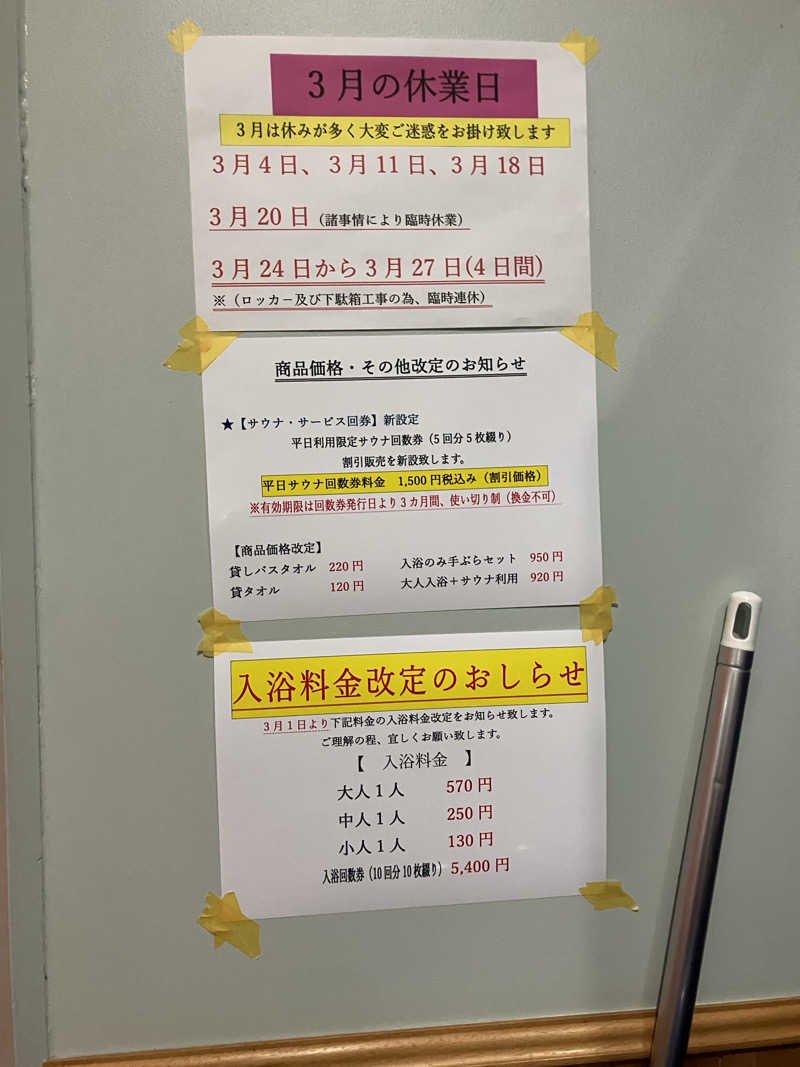 3月の休業日
3月は休みが多く大変ご迷惑をお掛け致します
3月4日、3月11日、3月18日
3月20日（諸事情により臨時休業）
3月24日から3月27日(4日間)
※（ロッカー及び下駄箱工事の為、臨時連休）
商品価格・その他改定のお知らせ
★【サウナ・サービス回券】新設定
平日利用限定サウナ回数券（5回分5枚綴り）
割引販売を新設致します。
平日サウナ回数券料金 1,500円税込み（割引価格）
※有効期限は回数券発行日より3カ月間、使い切り制（換金不可）
【商品価格改定】
貸しバスタオル 220円 入浴のみ手ぶらセット 950円
貸タオル 120円 大人入浴＋サウナ利用 920円
入浴料金改定のおしらせ
3月1日より下記料金の入浴料金改定をお知らせ致します。
ご理解の程、宜しくお願い致します。
【 入浴料金 】
大人1人 570円
中人1人 250円
小人1人 130円
入浴回数券（10回分10枚綴り） 5,400円